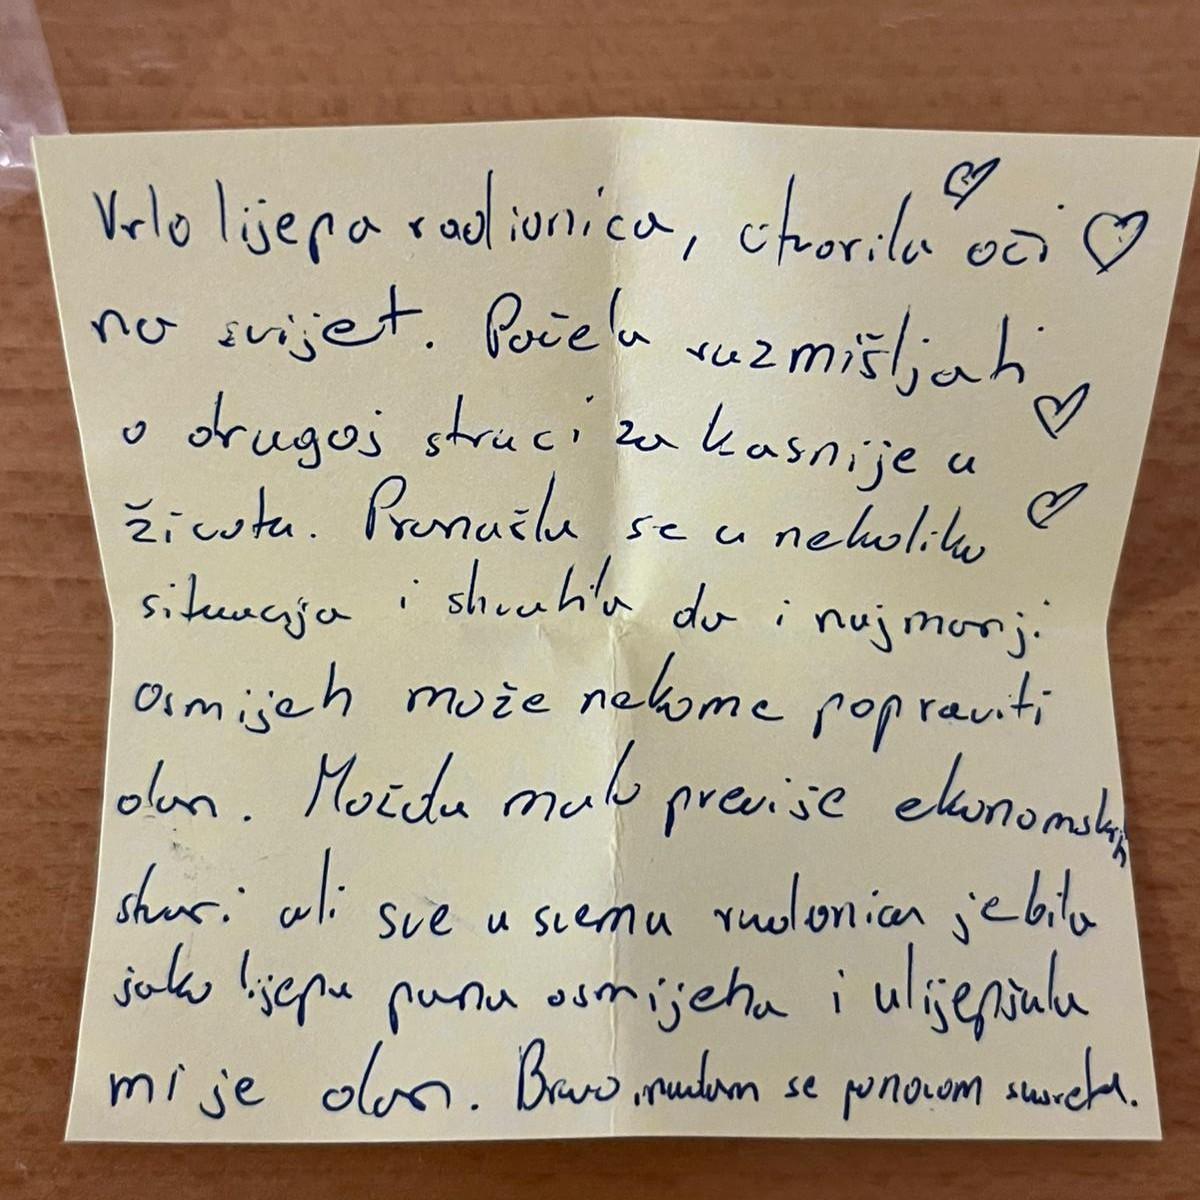 Vrlo lijepa radionica, otvorila oči
na svijet. Počela razmišljati
o drugoj struci za kasnije u
životu. Pronašla se u nekoliko
situacija i shvatila da i najmanji
osmijeh može nekome popraviti
dan. Možda malo previše ekonomskih
stvari ali sve u svemu radionica je bila
jako lijepa puna osmijeha i uljepšala
mi je dan. Bravo, nadam se ponovom susretu.